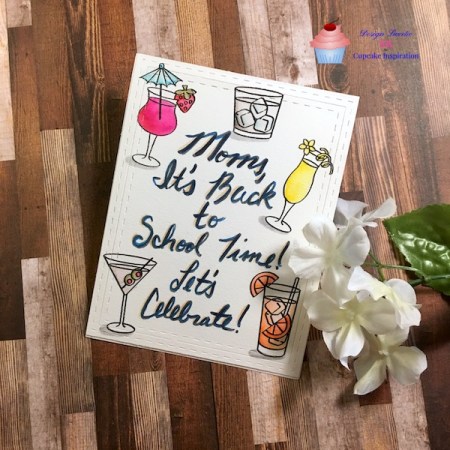 Design Invite
Cupcake Inspiration
Moms,
It's Back
to
School Time!
Let's
Celebrate!